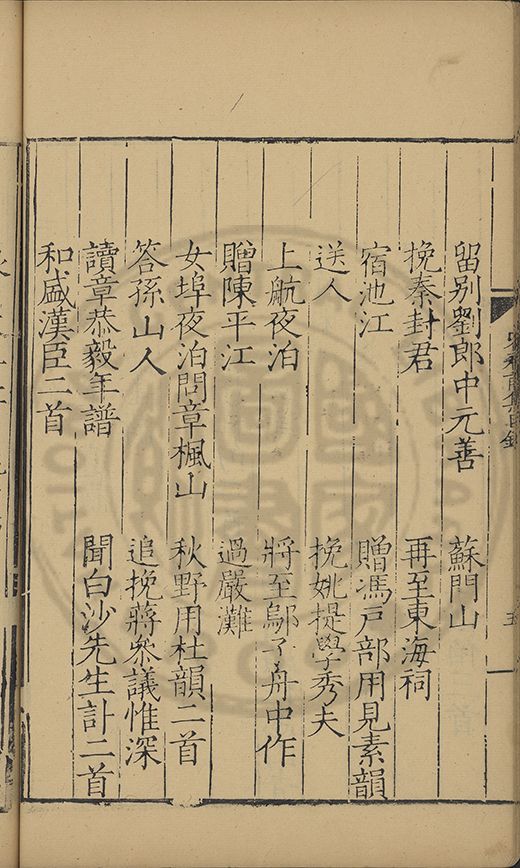 留别劉郎中元善　蘇門山
挽秦封君　再至東海祠
宿池江　贈馮戸部用見素韻
送人　挽姚提學秀夫
上航夜泊　將至鄔子舟中作
贈陳平江　過嚴灘
女埠夜泊問章楓山　秋野用杜韻二首
答孫山人　追挽蔣叅議惟深
讀章恭毅年譜　聞白沙先生訃二首
和盛漢臣二首